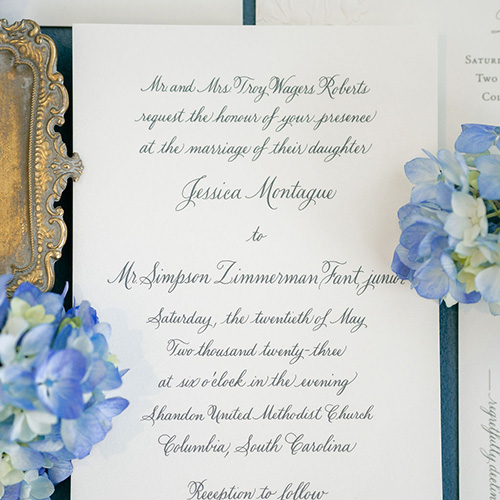 Mr and Mrs Troy Wagers Roberts
request the honour of your presence
at the marriage of their daughter
Jessica Montague
to
Mr Simpson Zimmerman Fant junior
Saturday, the twentieth of May
Two thousand twenty-three
at six o'clock in the evening
Shandon United Methodist Church
Columbia, South Carolina
Reception to follow
Two